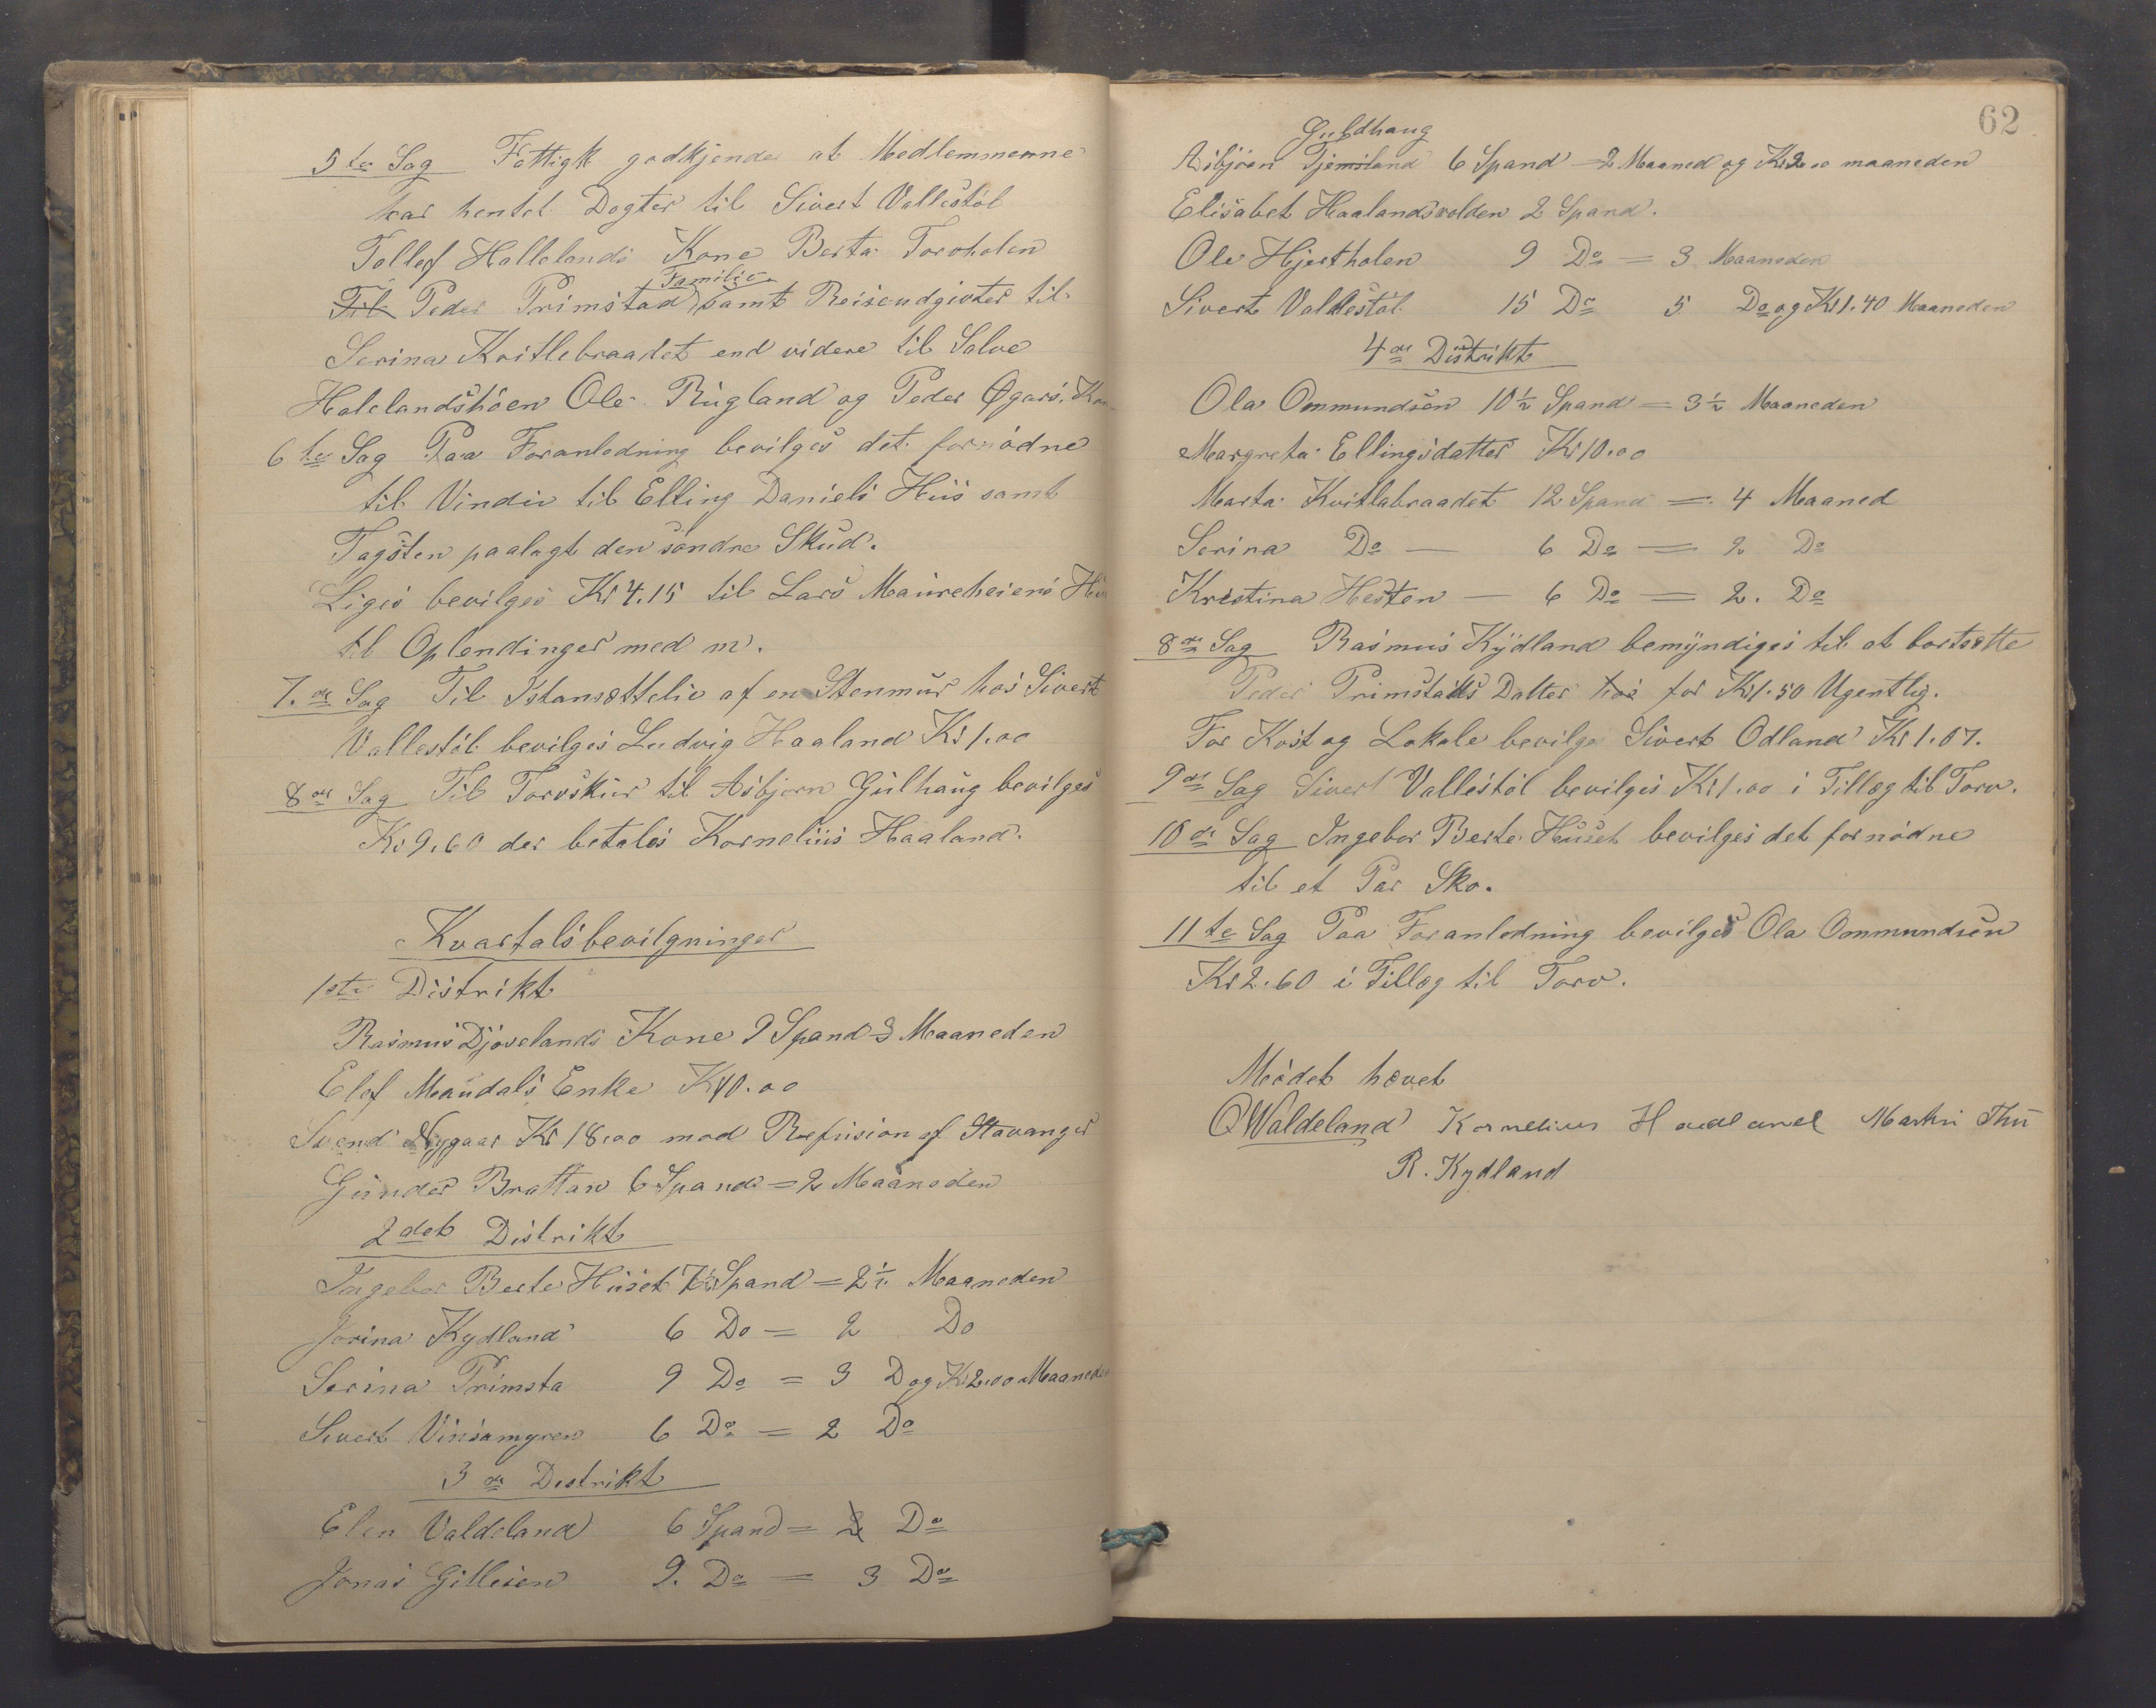 5te Sag Fattigk godkjender at Medlemmerne
har hentet Dogter til Sivert Vallestøl
Tollef Hallelands Kone Berta Torvholen
Familie
Til Peder Primstad samt Reiseudgivter til
Serina Kvitlebraadet end videre til Salve
Halelandshøen Ole Rugland og Peder Øgars. Kon
6te Sag Paa Foranledning bevilges det fornødne
til Vindu til Elling Daniels Hus samt
Tagsten paalagt den søndre Skud.
Liges bevilges Kr 4.15 til Lars Maureheiens Hus
til Oplendinger med m.
7.de Sag Til Istansættelse af en Stenmur hos Sivert
Vallestøl bevilges Ludvig Haaland Kr 1.00
8de Sag Til Torvskur til Asbjørn Gulhaug bevilges
Kr 9.60 der betales Kornelius Haaland.
Kvartalsbevilgninger
1ste Distrikt
Rasmus Djøvelands Kone 9 Spand 3 Maaneden
Elef Maudals Enke Kr 10.00
Svend Nygaar Kr 18.00 mod Refusion af Stavanger
Gunder Brattan 6 Spand = 2 Maaneden
2det Distrikt
Ingebor Berte Huset 7½ Spand = 2½ Maaneden
Jorina Kydland 6 Do = 2 Do
Serina Primsta 9 Do = 3 D og Kr 2.00 Maaneden
Sivert Vinsamyren 6 Do = 2 Do
3de Distrikt
Elen Valdeland 6 Spand = 2 Do
Jonas Gillesen 9. Do = 3 Do
62
Guldhaug
Asbjørn Tjemsland 6 Spand = 2 Maaned og Kr 2.00 maaneden
Elisabet Haalandsvolden 2 Spand.
Ole Hjertholen 9 Do = 3 Maaneden
Sivert Vallestøl 15 Do 5 Do og Kr 1.40 Maaneden
4de Distrikt
Ola Ommundsen 10½ Spand = 3½ Maaneden
Margreta Ellingsdatter Kr 10.00
Marta Kvitlabraadet 12 Spand = 4 Maaned
Serina Do — 6 Do = 2 Do
Kristina Hesten — 6 Do = 2. Do
8de Sag Rasmus Kydland bemyndiges til at bortsette
Peder Primstads Datter hos for Kr 1.50 Ugentlig.
For Kost og Lokale bevilges Sivert Odland Kr 1.07.
9de Sag Sivert Vallestøl bevilges Kr 1.00 i Tillæg til Torv.
10de Sag Ingebor Berte Huset bevilges det fornødne
til et Par Sko.
11te Sag Paa Foranledning bevilges Ola Ommundsen
Kr 2.60 i Tillæg til Torv.
Mødet hævet
O Waldeland Kornelius Haaland Martin Thu
R. Kydland